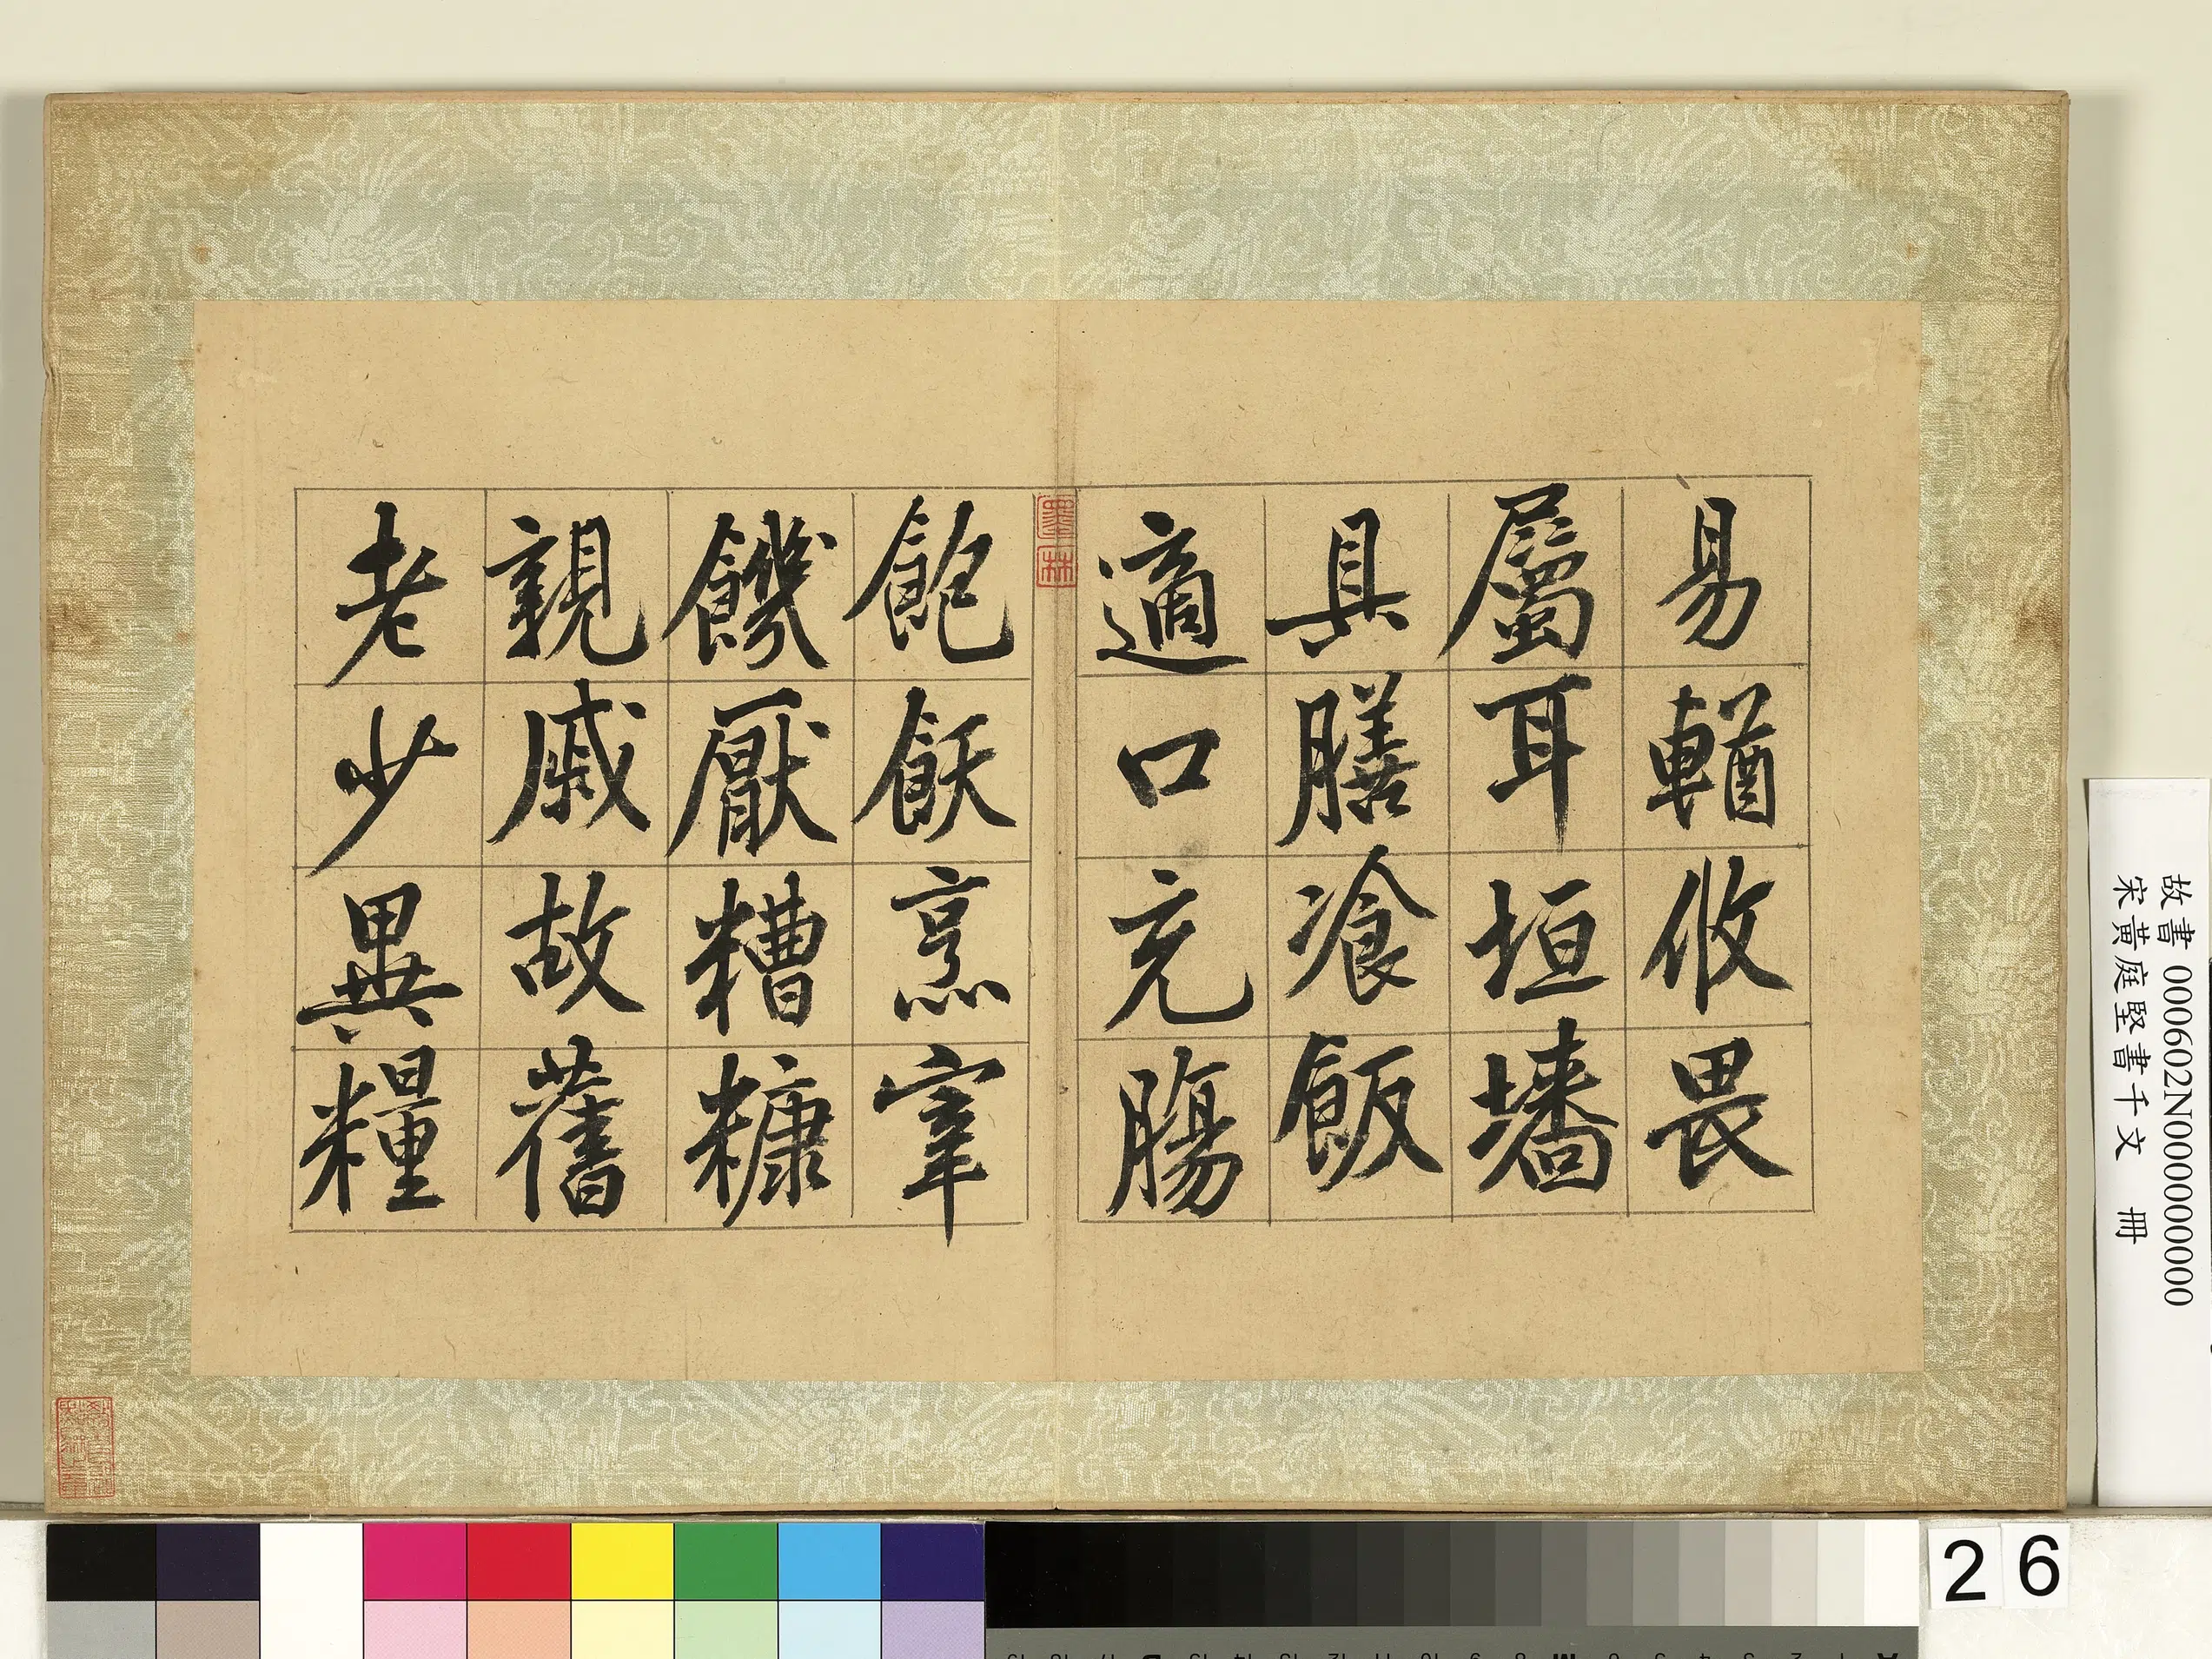 易輶攸畏
屬耳垣墻
具膳飡飯
適口充腸
飽飫烹宰
饑厭糟糠
親戚故舊
老少異糧
墨林
故書 000602N000000000
宋黃庭堅書千文 冊
26